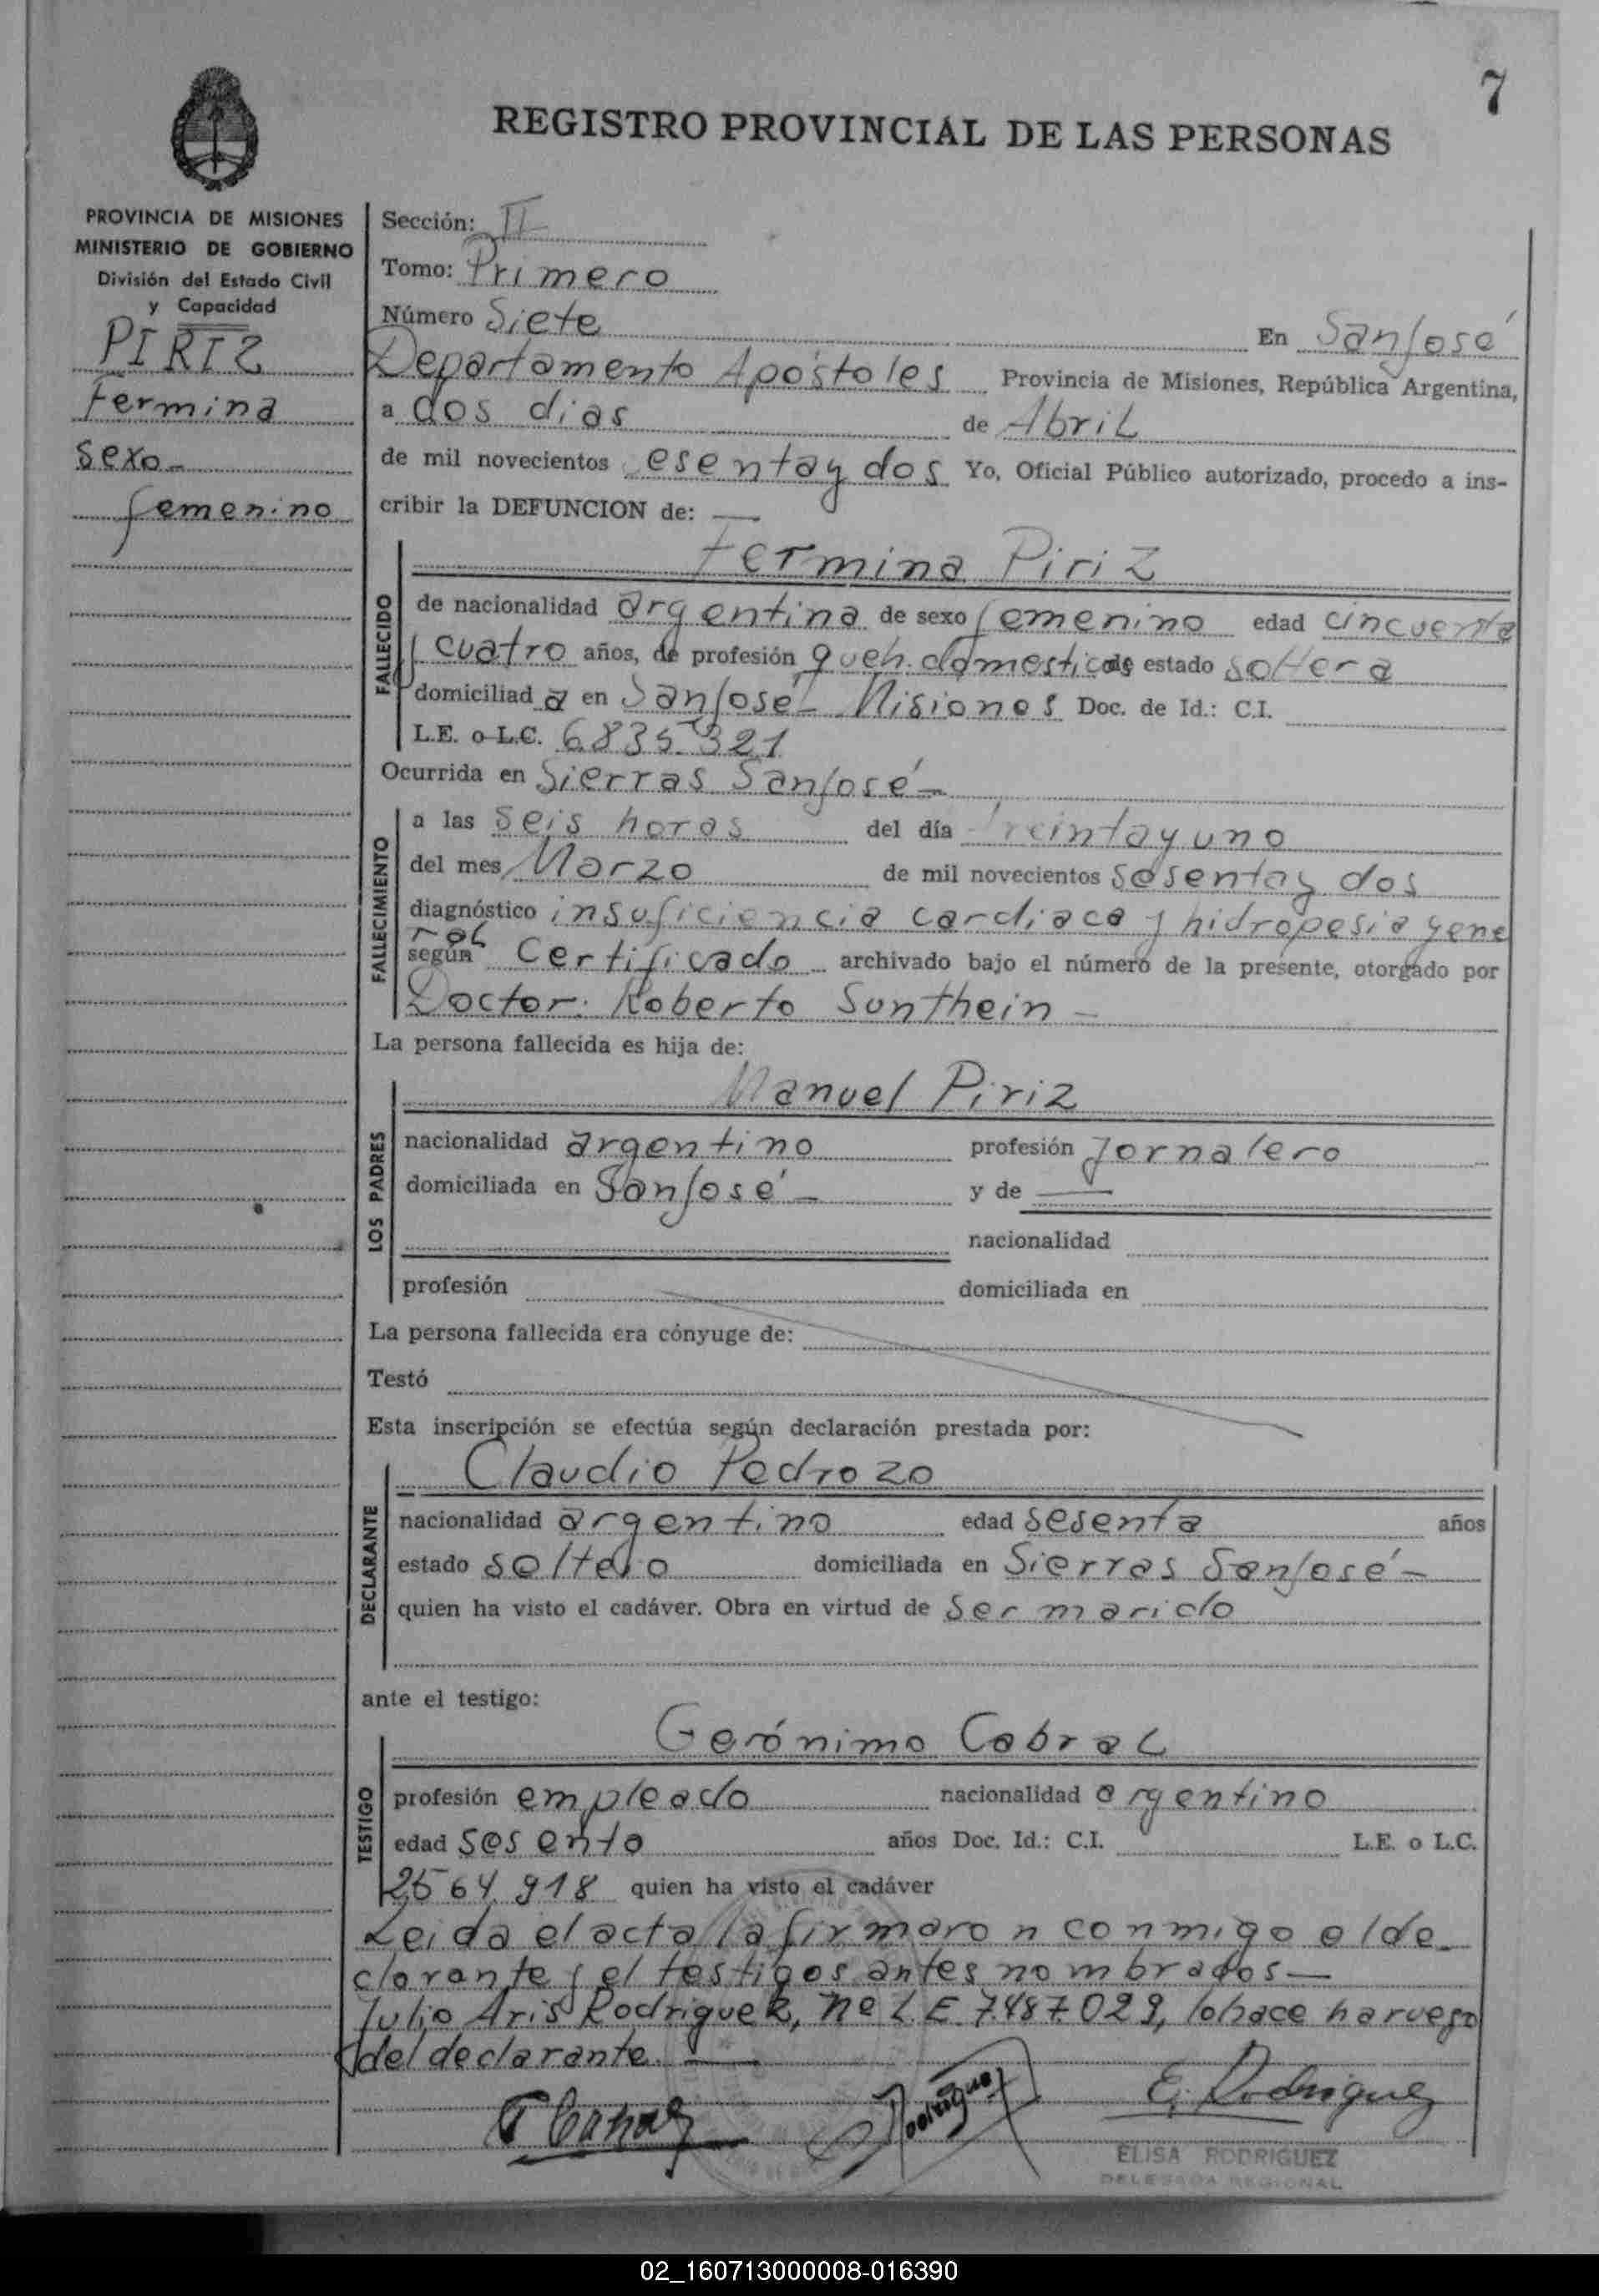 7
REGISTRO PROVINCIAL DE LAS PERSONAS
PROVINCIA DE MISIONES
MINISTERIO DE GOBIERNO
División del Estado Civil
y Capacidad
PIRIZ
Fermina
sexo-
femenino
Sección: II
Tomo: Primero
Número Siete En San José
Departamento Apóstoles Provincia de Misiones, República Argentina,
a dos dias de Abril
de mil novecientos esenta y dos Yo, Oficial Público autorizado, procedo a ins-
cribir la DEFUNCION de: —
Fermina Piriz
FALLECIDO
de nacionalidad argentina de sexo femenino edad cincuenta
y cuatro años, de profesión queh. domesticos de estado soltera
domiciliad a en San José - Misiones Doc. de Id.: C.I.
L.E. o L.C. 6.835.321
Ocurrida en Sierras San José -
FALLECIMIENTO
a las seis horas del día treinta y uno
del mes Marzo de mil novecientos sesenta y dos
diagnóstico insuficiencia cardiaca y hidropesia gene
ral
según Certificado archivado bajo el número de la presente, otorgado por
Doctor. Roberto Sunthein -
La persona fallecida es hija de:
Manuel Piriz
LOS PADRES
nacionalidad argentino profesión Jornalero
domiciliada en San José - y de —
nacionalidad
profesión domiciliada en
La persona fallecida era cónyuge de:
Testó
Esta inscripción se efectúa según declaración prestada por:
Claudio Pedrozo
DECLARANTE
nacionalidad argentino edad sesenta años
estado soltero domiciliada en Sierras San José -
quien ha visto el cadáver. Obra en virtud de ser marido
ante el testigo:
Gerónimo Cabral
TESTIGO
profesión empleado nacionalidad argentino
edad sesenta años Doc. Id.: C.I. L.E. o L.C.
2564.918 quien ha visto el cadáver
Leida el acta la firmaron conmigo el de-
clarante y el testigos antes nombrados —
Julio Aris Rodriguez, No L.E. 7.487.029, lo hace ha ruego
del declarante. —
Rodriguez
E. Rodriguez
ELISA RODRIGUEZ
DELEGADA REGIONAL
02_160713000008-016390